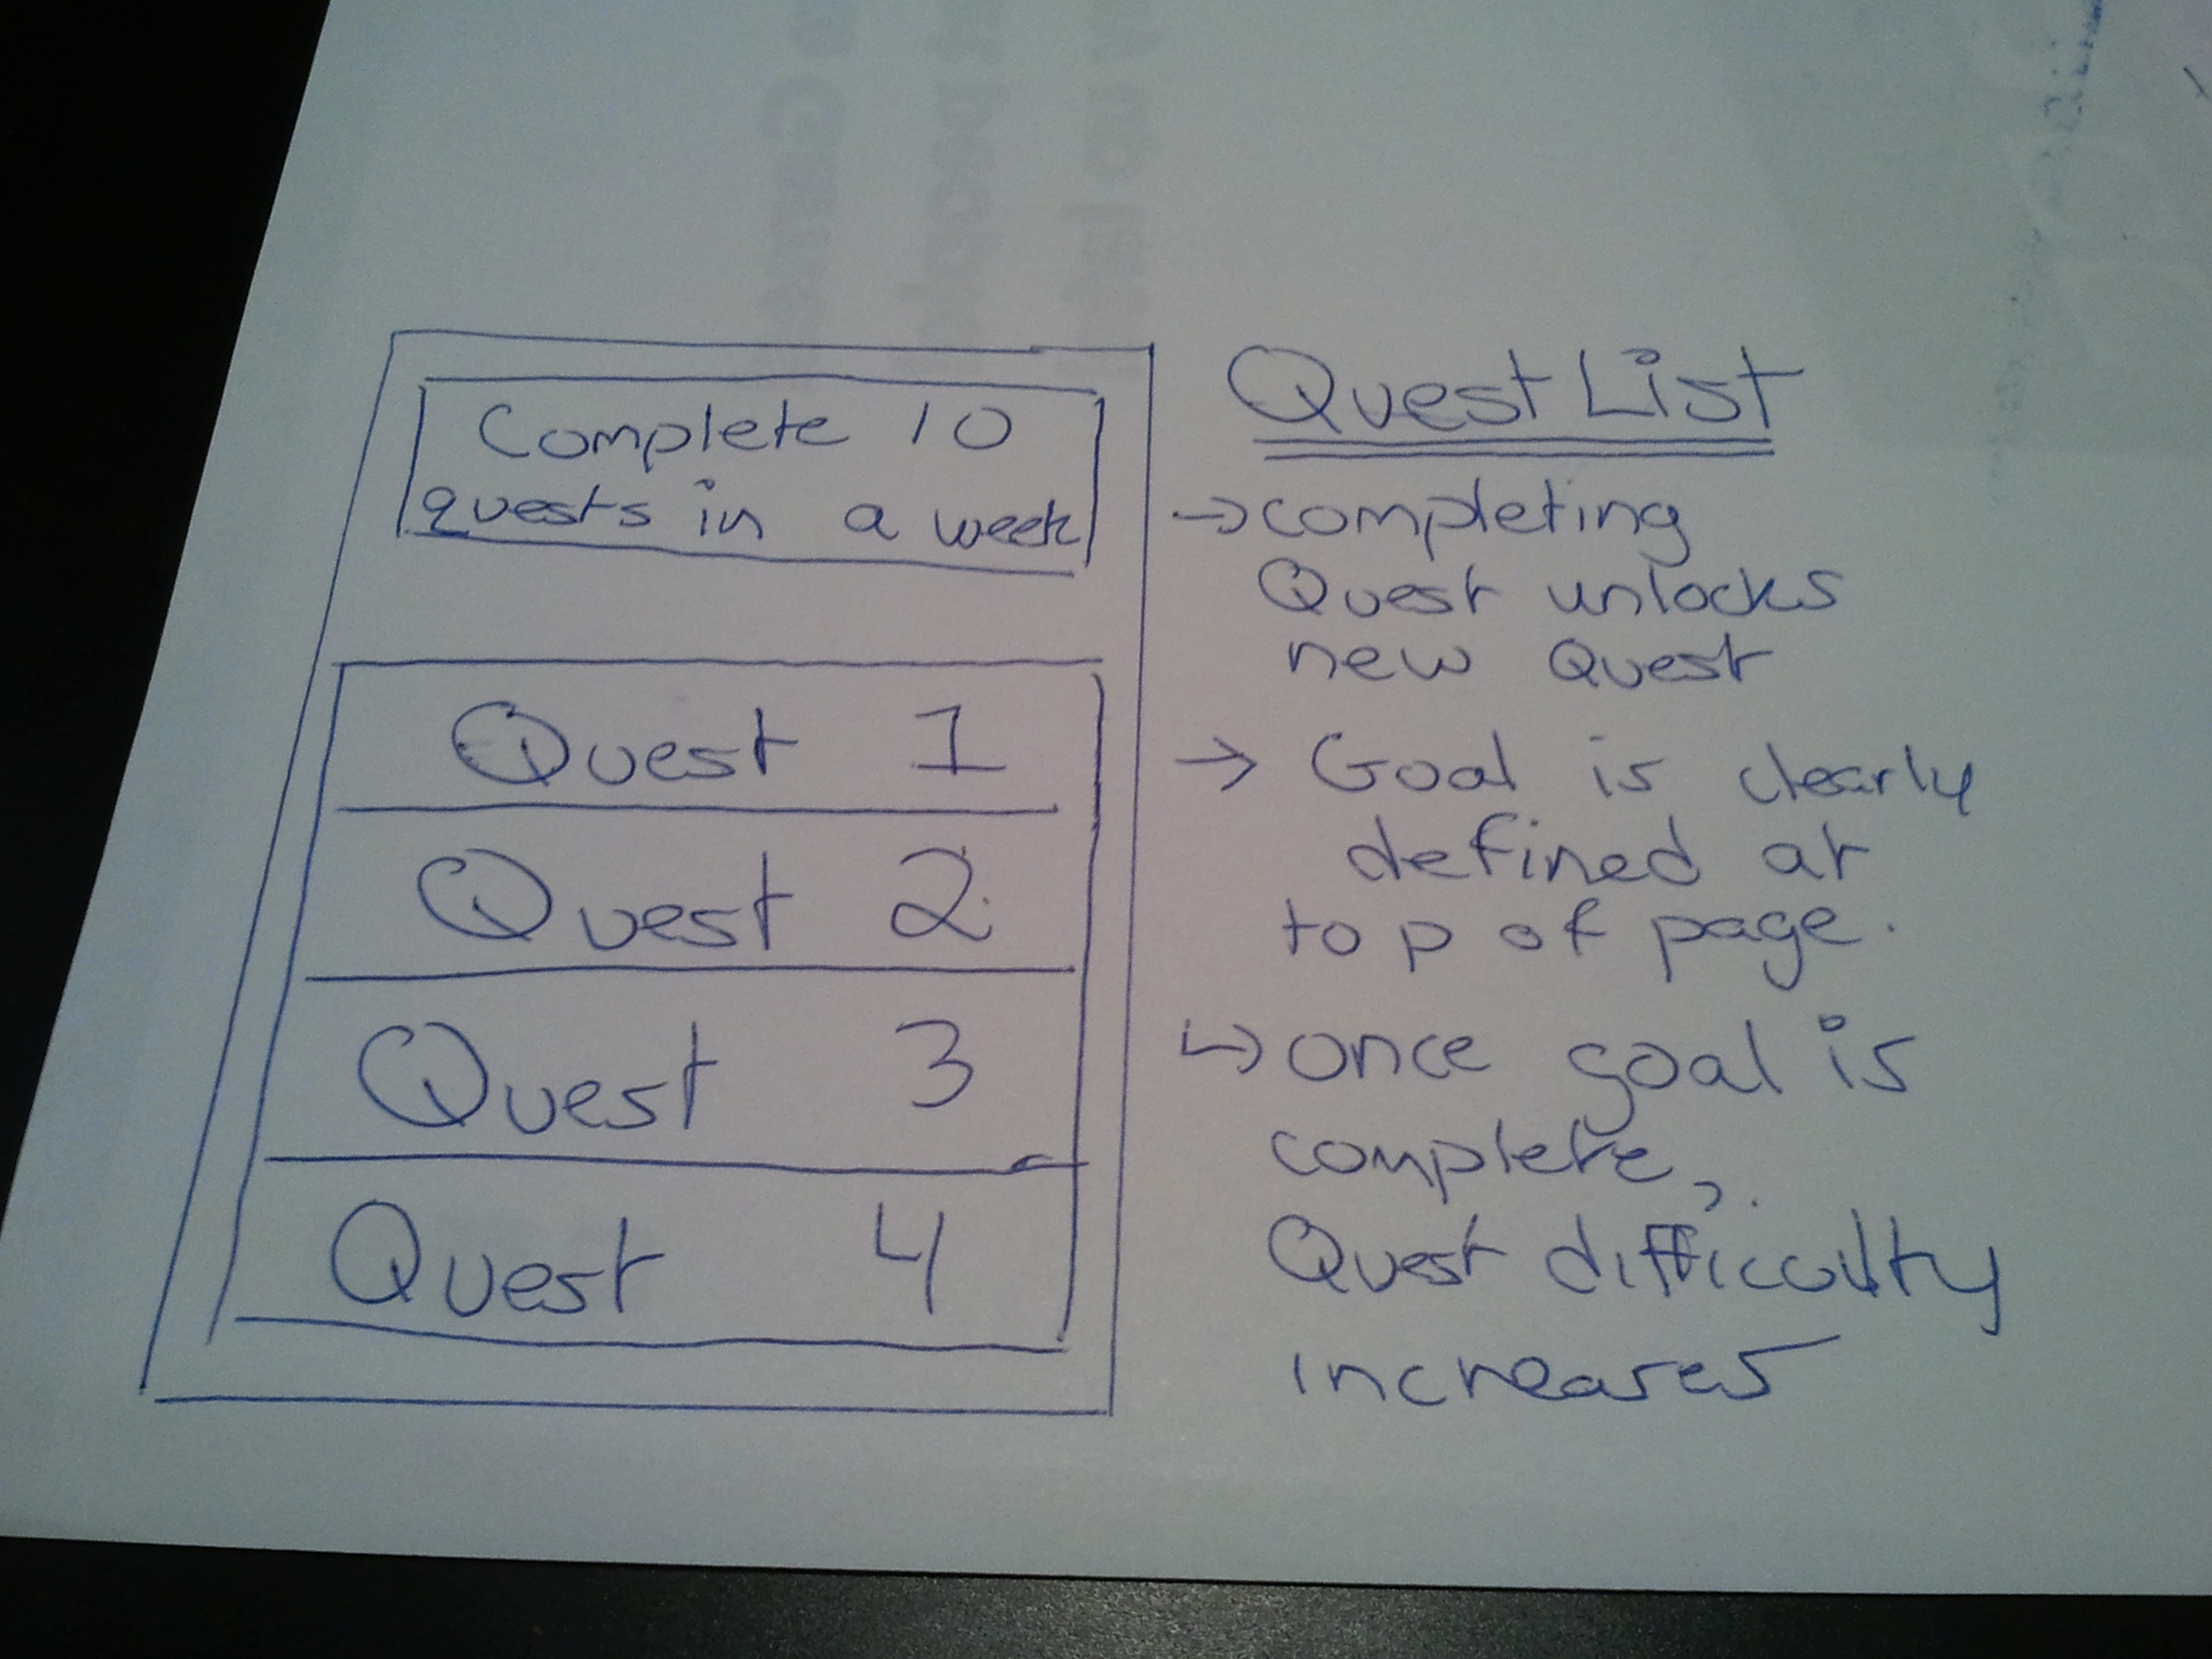 Complete 10
quests in a week
Quest 1
Quest 2
Quest 3
Quest 4
Quest List
→ completing
Quest unlocks
new Quest
→ Goal is clearly
defined at
top of page.
↳ once goal is
complete,
Quest difficulty
increases